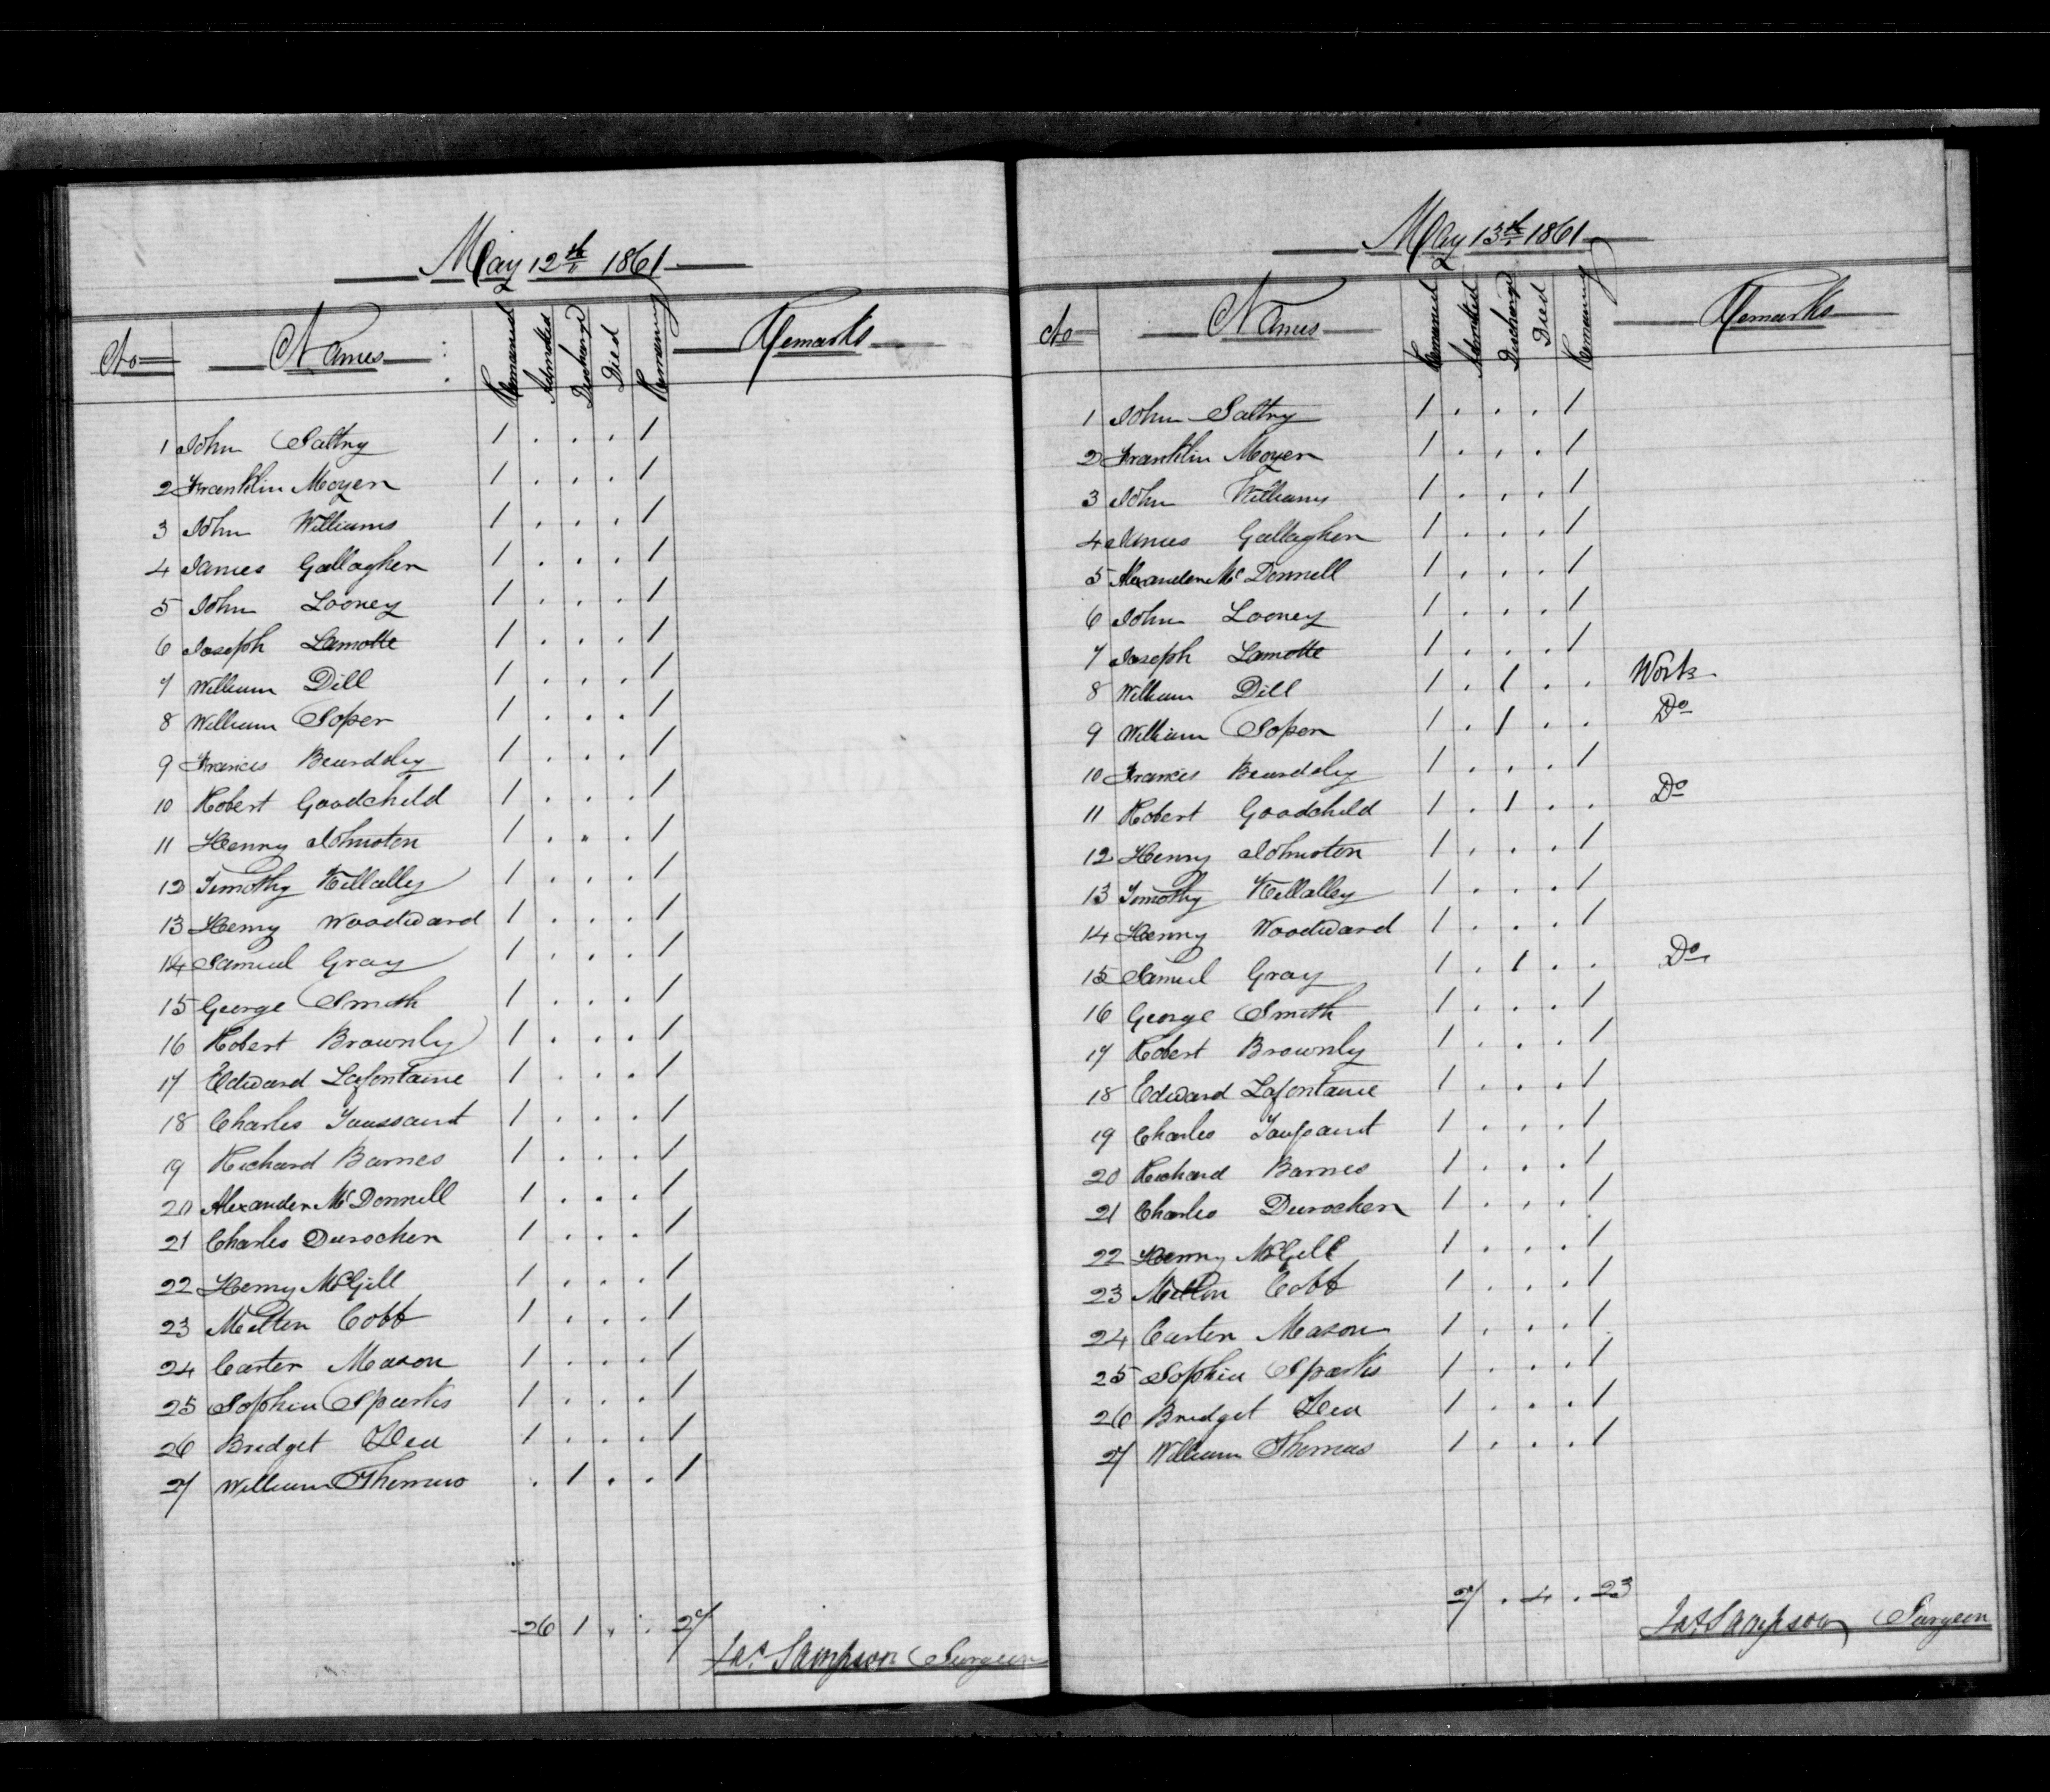 May 12th 1861
No Names Remained Admitted Discharged Died Remaining Remarks
1 John Saltry 1 . . . 1
2 Franklin Moyer 1 . . . 1
3 John Williams 1 . . . 1
4 James Gallagher 1 . . . 1
5 John Looney 1 . . . 1
6 Joseph Lamotte 1 . . . 1
7 William Dill 1 . . . 1
8 William Soper 1 . . . 1
9 Francis Beardsley 1 . . . 1
10 Robert Goodchild 1 . . . 1
11 Henry Johnston 1 . . . 1
12 Timothy Killalley 1 . . . 1
13 Henry Woodward 1 . . . 1
14 Samuel Gray 1 . . . 1
15 George Smith 1 . . . 1
16 Robert Brownly 1 . . . 1
17 Edward Lafontaine 1 . . . 1
18 Charles Toussaint 1 . . . 1
19 Richard Barnes 1 . . . 1
20 Alexander McDonnell 1 . . . 1
21 Charles Durocher 1 . . . 1
22 Henry McGill 1 . . . 1
23 Milton Cobb 1 . . . 1
24 Carter Mason 1 . . . 1
25 Sophia Sparks 1 . . . 1
26 Bridget 1 . . . 1
27 William Thomas . 1 . . 1
26 1 . . 27
Jas. Sampson Surgeon
May 13th 1861
No Names Remained Admitted Discharged Died Remaining Remarks
1 John Saltry 1 . . . 1
2 Franklin Moyer 1 . . . 1
3 John Williams 1 . . . 1
4 James Gallagher 1 . . . 1
5 Alexander McDonnell 1 . . . 1
6 John Looney 1 . . . 1
7 Joseph Lamotte 1 . . . 1
8 William Dill 1 . 1 . . Work
9 William Soper 1 . 1 . . Do
10 Francis Beardsley 1 . . . 1
11 Robert Goodchild 1 . 1 . . Do
12 Henry Johnston 1 . . . 1
13 Timothy Killalley 1 . . . 1
14 Henry Woodward 1 . . . 1
15 Samuel Gray 1 . 1 . . Do
16 George Smith 1 . . . 1
17 Robert Brownly 1 . . . 1
18 Edward Lafontaine 1 . . . 1
19 Charles Toussaint 1 . . . 1
20 Richard Barnes 1 . . . 1
21 Charles Durocher 1 . . . 1
22 Henry McGill 1 . . . 1
23 Milton Cobb 1 . . . 1
24 Carter Mason 1 . . . 1
25 Sophia Sparks 1 . . . 1
26 Bridget 1 . . . 1
27 William Thomas 1 . . . 1
27 . 4 . 23
Jas. Sampson Surgeon